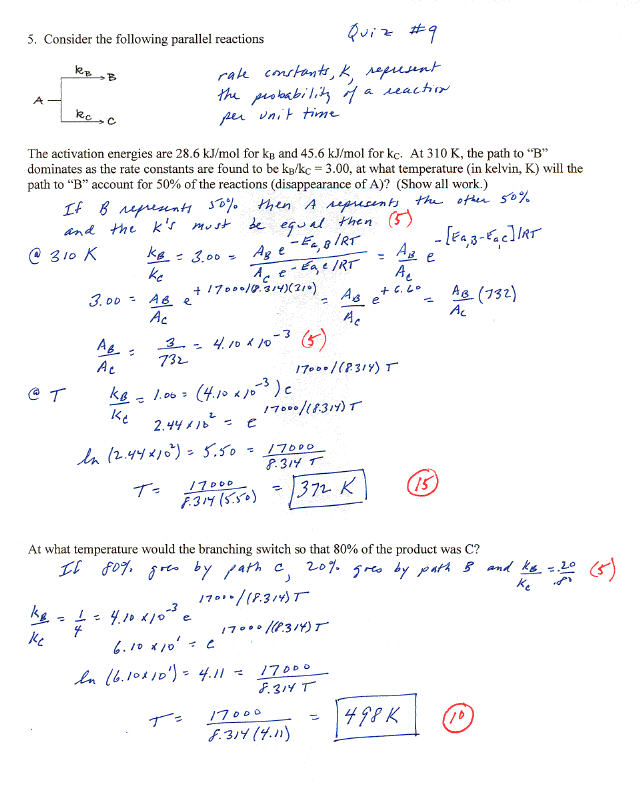 Quiz #9
5. Consider the following parallel reactions
kB B
A
kC C
rate constants, k, represent
the probability of a reaction
per unit time
The activation energies are 28.6 kJ/mol for kB and 45.6 kJ/mol for kC. At 310 K, the path to “B”
dominates as the rate constants are found to be kB/kC = 3.00, at what temperature (in kelvin, K) will the
path to “B” account for 50% of the reactions (disappearance of A)? (Show all work.)
If B represents 50% then A represents the other 50%
and the k's must be equal then (5)
@ 310 K kB/kC = 3.00 = AB e^-Ea,B/RT / AC e^-Ea,C/RT = AB/AC e^-[Ea,B-Ea,C]/RT
3.00 = AB/AC e^+17000/(8.314)(310) = AB/AC e^+6.60 = AB/AC (732)
AB/AC = 3/732 = 4.10 x 10^-3 (5)
@ T kB/kC = 1.00 = (4.10 x 10^-3) e^17000/(8.314) T
2.44 x 10^2 = e^17000/(8.314) T
ln (2.44 x 10^2) = 5.50 = 17000/8.314 T
T = 17000/8.314 (5.50) = 372 K (15)
At what temperature would the branching switch so that 80% of the product was C?
If 80% goes by path C, 20% goes by path B and kB/kC = .20/.80 (5)
kB/kC = 1/4 = 4.10 x 10^-3 e^17000/(8.314) T
6.10 x 10^1 = e^17000/(8.314) T
ln (6.10 x 10^1) = 4.11 = 17000/8.314 T
T = 17000/8.314 (4.11) = 498 K (10)